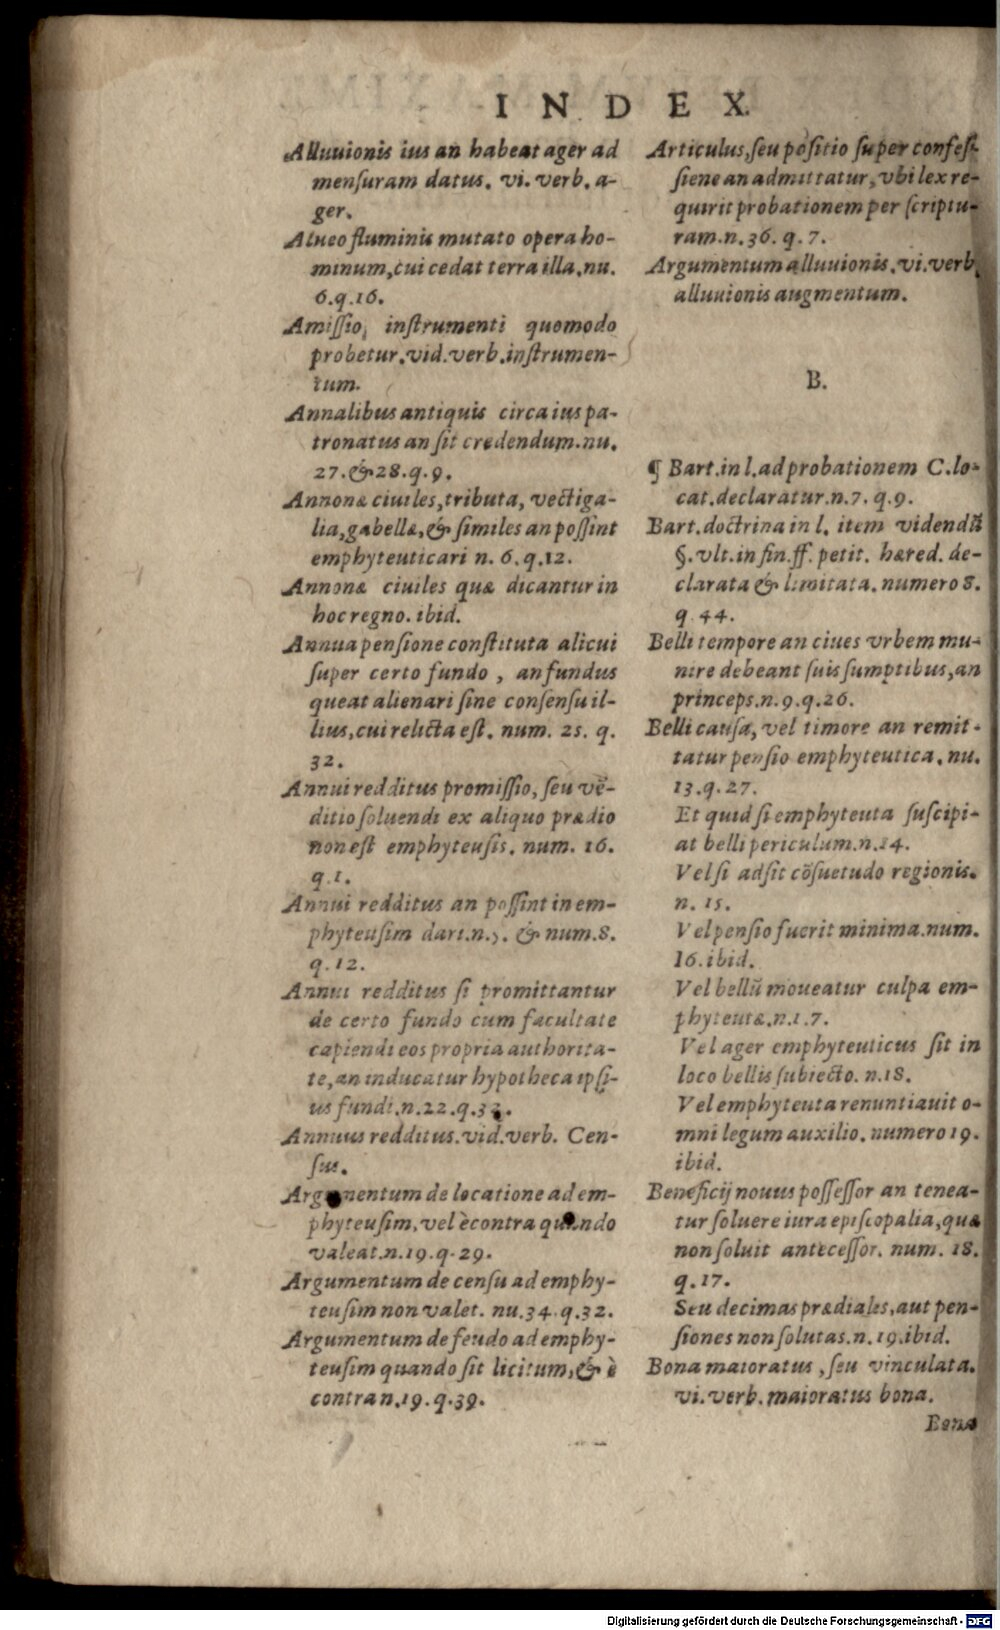 INDEX
Alluuionis ius an habeat ager ad
menſuram datus. vi. verb. a-
ger.
Alueo fluminis mutato opera ho-
minum, cui cedat terra illa. nu.
6. q. 16.
Amiſſio, inſtrumenti quomodo
probetur. vid. verb. inſtrumen-
tum.
Annalibus antiquis circa ius pa-
tronatus an ſit credendum. nu.
27. & 28. q. 9.
Annonæ ciuiles, tributa, vectiga-
lia, gabellæ, & ſimiles an poſſint
emphyteuticari n. 6. q. 12.
Annonæ ciuiles quæ dicantur in
hoc regno. ibid.
Annua penſione conſtituta alicui
ſuper certo fundo, an fundus
queat alienari ſine conſenſu il-
lius, cui relicta eſt. num. 25. q.
32.
Annui redditus promiſſio, ſeu vē-
ditio ſoluendi ex aliquo prædio
non eſt emphyteuſis. num. 16.
q. 1.
Annui redditus an poſſint in em-
phyteuſim dari. n. & num. 8.
q. 12.
Annui redditus ſi promittantur
de certo fundo cum facultate
capiendi eos propria authorita-
te, an inducatur hypotheca ipſi-
us fundi. n. 22. q. 32.
Annuus redditus. vid. verb. Cen-
ſus.
Argumentum de locatione ad em-
phyteuſim, vel è contra quando
valeat. n. 19. q. 29.
Argumentum de cenſu ad emphy-
teuſim non valet. nu. 34. q. 32.
Argumentum de feudo ad emphy-
teuſim quando ſit licitum, & è
contra n. 19. q. 39.
Articulus, ſeu poſitio ſuper confeſ-
ſiene an admittatur, vbi lex re-
quirit probationem per ſcriptu-
ram. n. 36. q. 7.
Argumentum alluuionis. vi. verb.
alluuionis augmentum.
B.
¶ Bart. in l. ad probationem C. lo-
cat. declaratur. n. 7. q. 9.
Bart. doctrina in l. item videndū
§. vlt. in fin. ff. petit. hæred. de-
clarata & limitata. numero 8.
q. 44.
Belli tempore an ciues vrbem mu-
nire debeant ſuis ſumptibus, an
princeps. n. 9. q. 26.
Belli cauſa, vel timore an remit-
tatur penſio emphyteutica. nu.
13. q. 27.
Et quid ſi emphyteuta ſuſcipi-
at belli periculum. n. 14.
Vel ſi adſit cōſuetudo regionis.
n. 15.
Vel penſio fuerit minima. num.
16. ibid.
Vel bellū moueatur culpa em-
phyteutæ. n. 1.7.
Vel ager emphyteuticus ſit in
loco bellis ſubiecto. n. 18.
Vel emphyteuta renuntiauit o-
mni legum auxilio. numero 19.
ibid.
Beneficij nouus poſſeſſor an tenea-
tur ſoluere iura epiſcopalia, quæ
non ſoluit anteceſſor. num. 18.
q. 17.
Seu decimas prædiales, aut pen-
ſiones non ſolutas. n. 19. ibid.
Bona maioratus, ſeu vinculata.
vi. verb. maioratus bona.
Bona
Digitalisierung gefördert durch die Deutsche Forschungsgemeinschaft - DFG